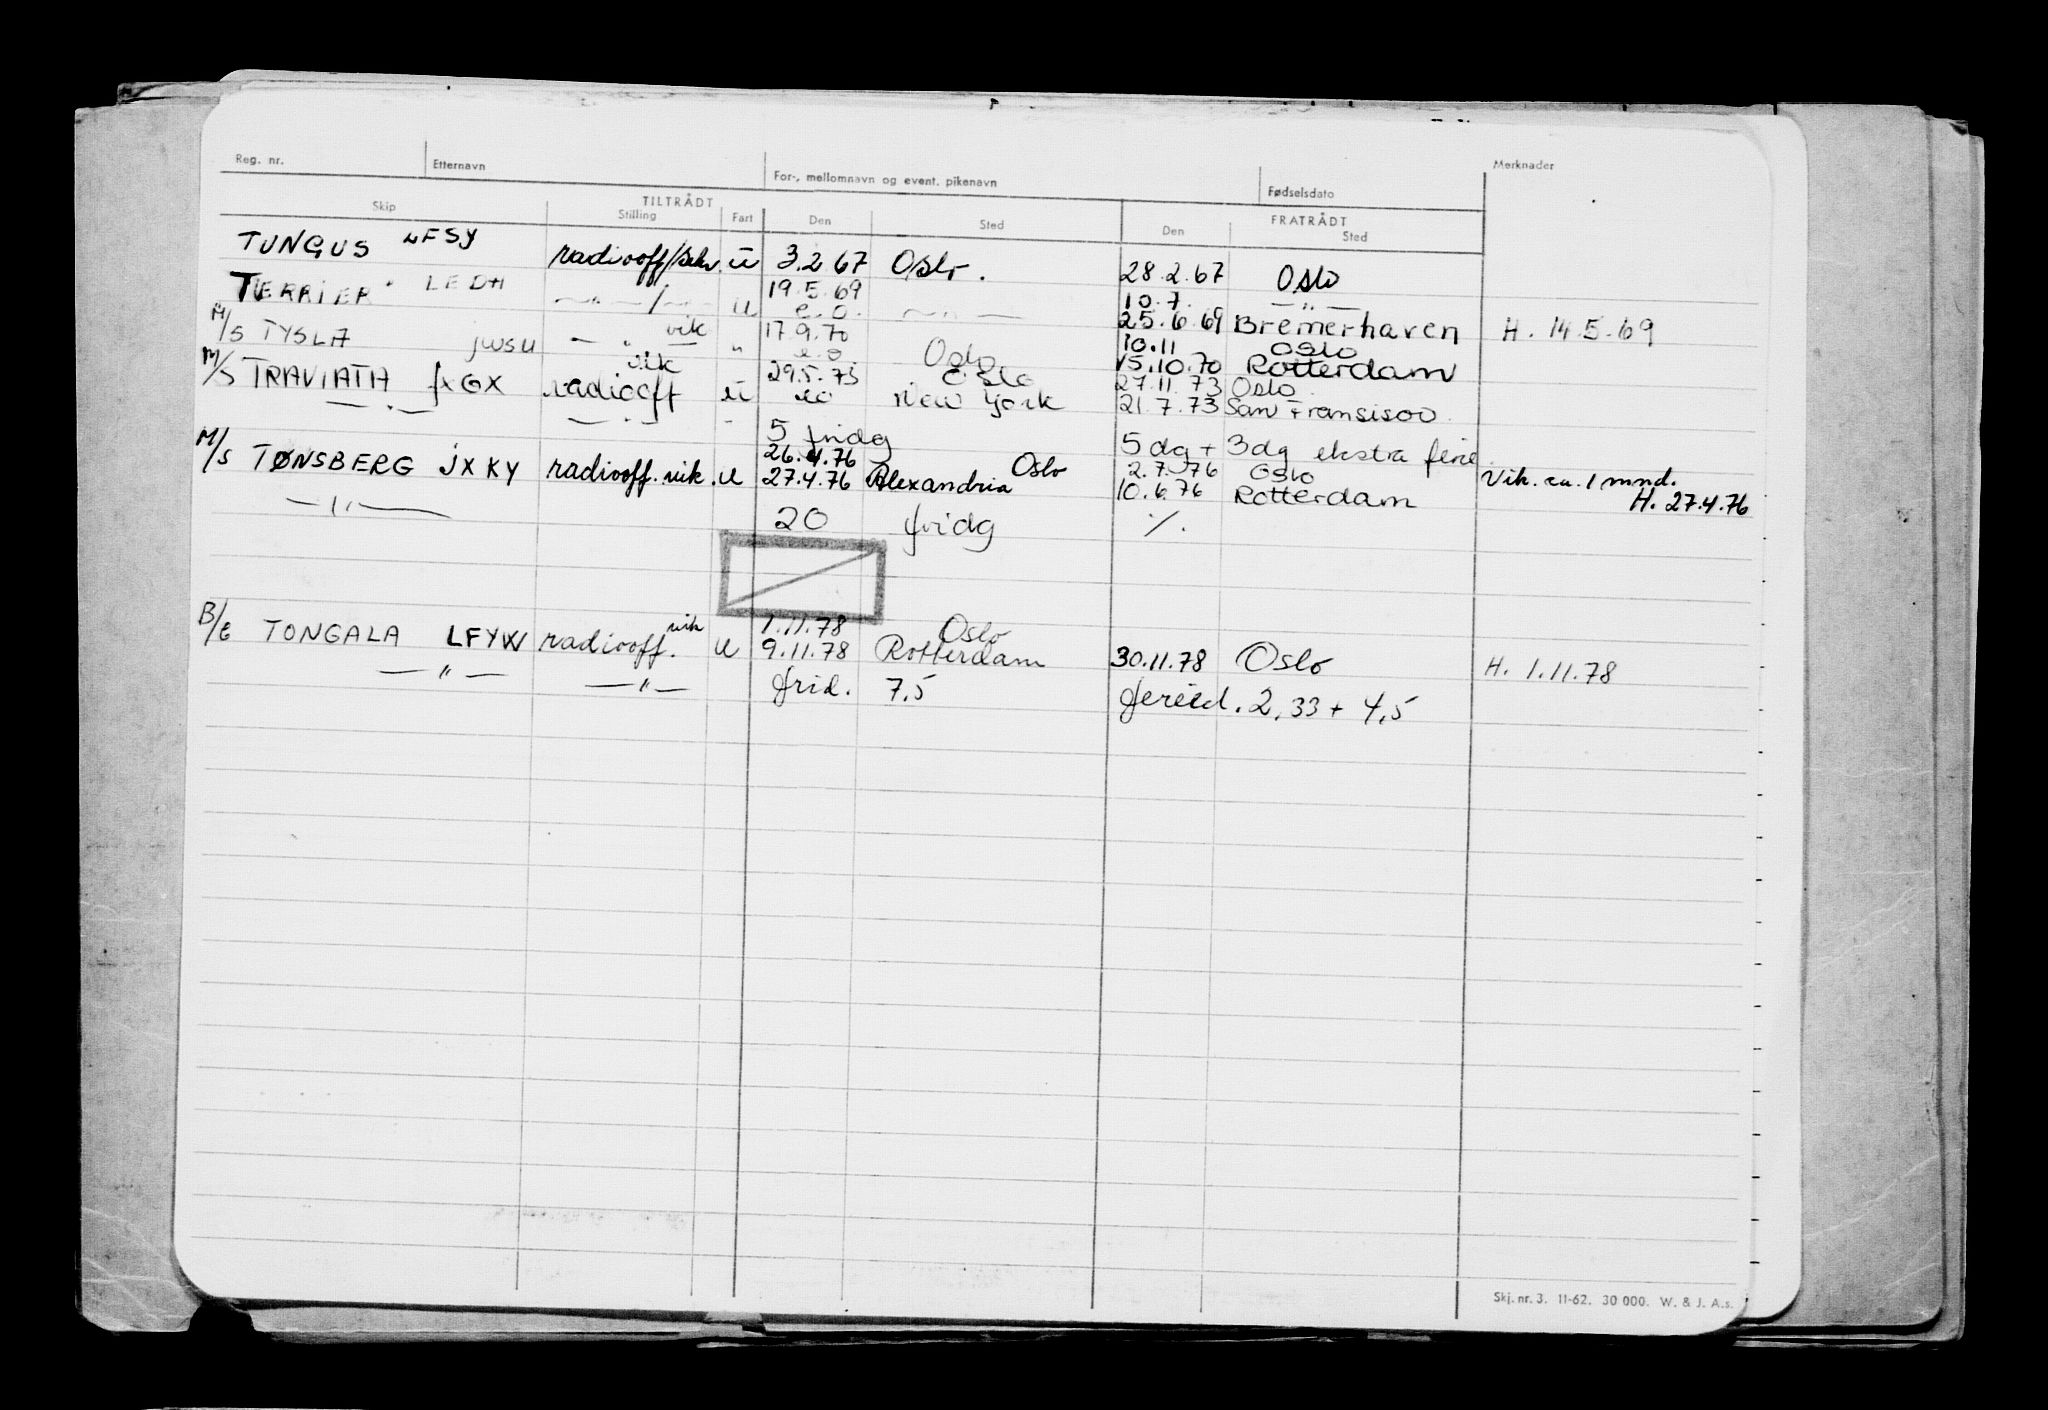 Reg. nr. Etternavn For-, mellomnavn og event. pikenavn Fødselsdato Merknader
TILTRÅDT FRATRÅDT
Skip Stilling Fart Den Sted Den Sted
TUNGUS LFSY radiooff/sekr. u 3.2 67 Oslo. 28.2.67 Oslo
TERRIER LEDH —"—/—"— u 19.5.69 e.o. —"— 10.7. —"—
25.6.69 Bremerhaven H. 14.5.69
M/S TYSLA JWSU —"— vik " 17.9.70 e.o Oslo 10.11 Oslo
15.10.70 Rotterdam
M/S TRAVIATA JXGX radiooff vik u 29.5.73 Oslo 27.11.73 Oslo
eo New York 21.7.73 San Fransisco
—"— —"— " 5 fridg 5 dg + 3dg ekstra ferie
M/S TØNSBERG JXKY radiooff. vik. u 26.4.76 Oslo 2.7.76 Oslo Vik. ca. 1 mnd.
27.4.76 Alexandria 10.6.76 Rotterdam H. 27.4.76
—"— 20 fridg ·/.
B/E TONGALA LFYW radiooff. vik u 1.11.78 Oslo
9.11.78 Rotterdam 30.11.78 Oslo H. 1.11.78
—"— —"— frid. 7,5 feried. 2,33 + 4,5
Skj. nr. 3. 11-62. 30 000. W. & J. A.s.